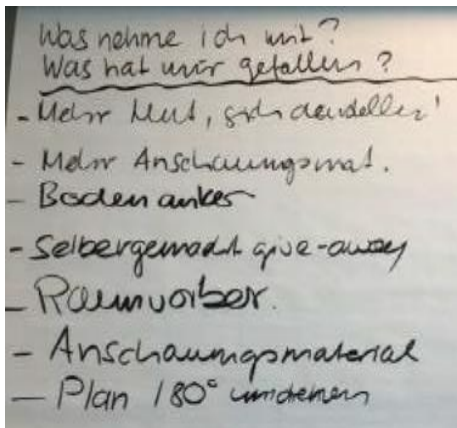 Was nehme ich mit?
Was hat mir gefallen?
- Mehr Mut, sich
- Mehr Anschauungsmat.
- Bodenanker
- Selbergemacht give-away
- Raumvorber.
- Anschauungsmaterial
- Plan 180° umdrehen